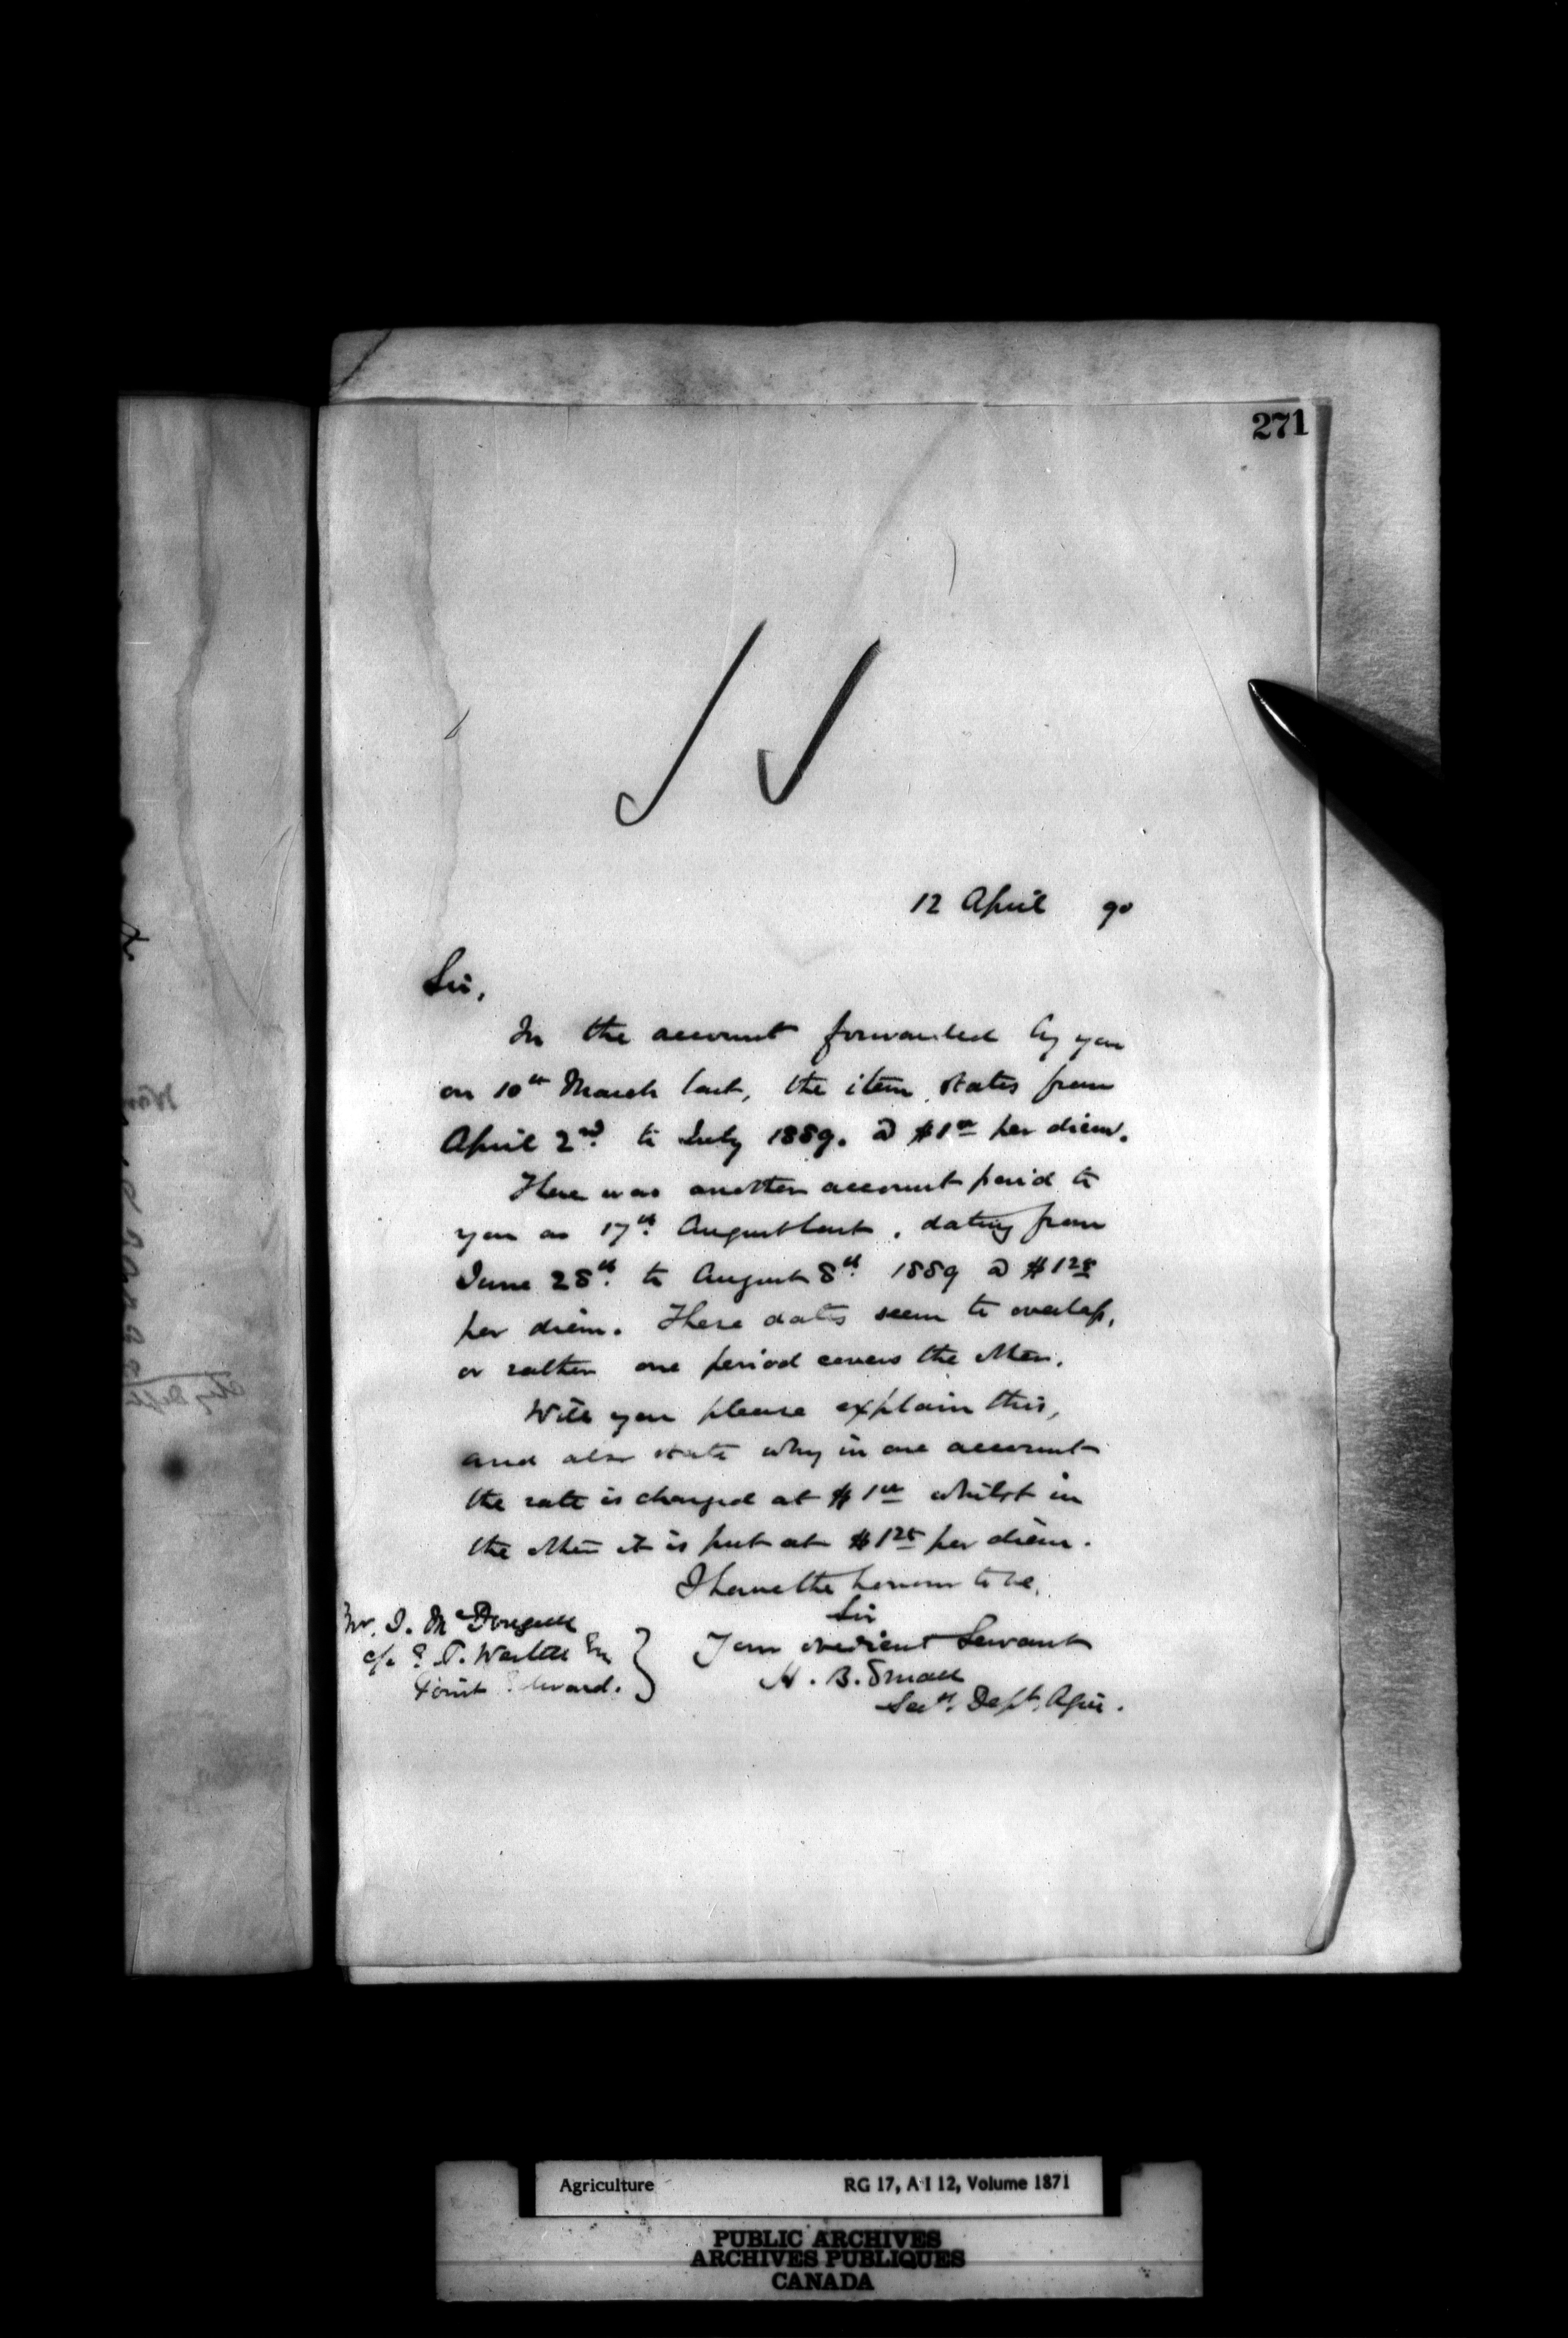 271
12 April 90
Sir,
In the account forwarded by you
on 10th March last, the item states from
April 2nd to July 1889. @ $1.00 per diem.
There was another account paid to
you on 17th August last, dating from
June 28th to August 8th 1889 @ $1.25
per diem. These dates seem to overlap,
or rather one period covers the other.
Will you please explain this,
and also state why in one account
the rate is charged at $1.00 whilst in
the other it is put at $1.25 per diem.
I have the honour to be,
Sir
Your obedient Servant
H. B. Small
Secy. Dept. Agri.
Mr. D. McDougall
c/o Esq
Point Edward.
Agriculture RG 17, A I 12, Volume 1871
PUBLIC ARCHIVES
ARCHIVES PUBLIQUES
CANADA